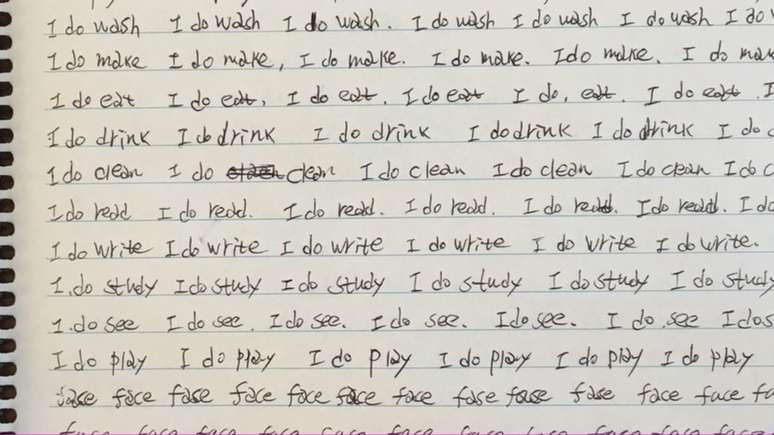 I do wash I do wash I do wash. I do wash I do wash I do wash I do
I do make I do make, I do make. I do make. Ido make. I do mak
I do eat I do eat, I do eat. I do eat I do, eat. I do eat. I
I do drink I do drink I do drink I do drink I do drink I do
I do clean I do clean I do clean I do clean I do clean I do c
I do read I do read. I do read. I do read. I do read. Ido read. I do
I do write I do write I do write I do write I do write I do write.
1.do study I do study I do study I do study I do study I do study
1.do see I do see. I do see. I do see. Ido see. I do see Idos
I do play I do play I do play I do play I do play I do play
face face fase face face face face fase fase face face fa
face face face face face face face face face face face